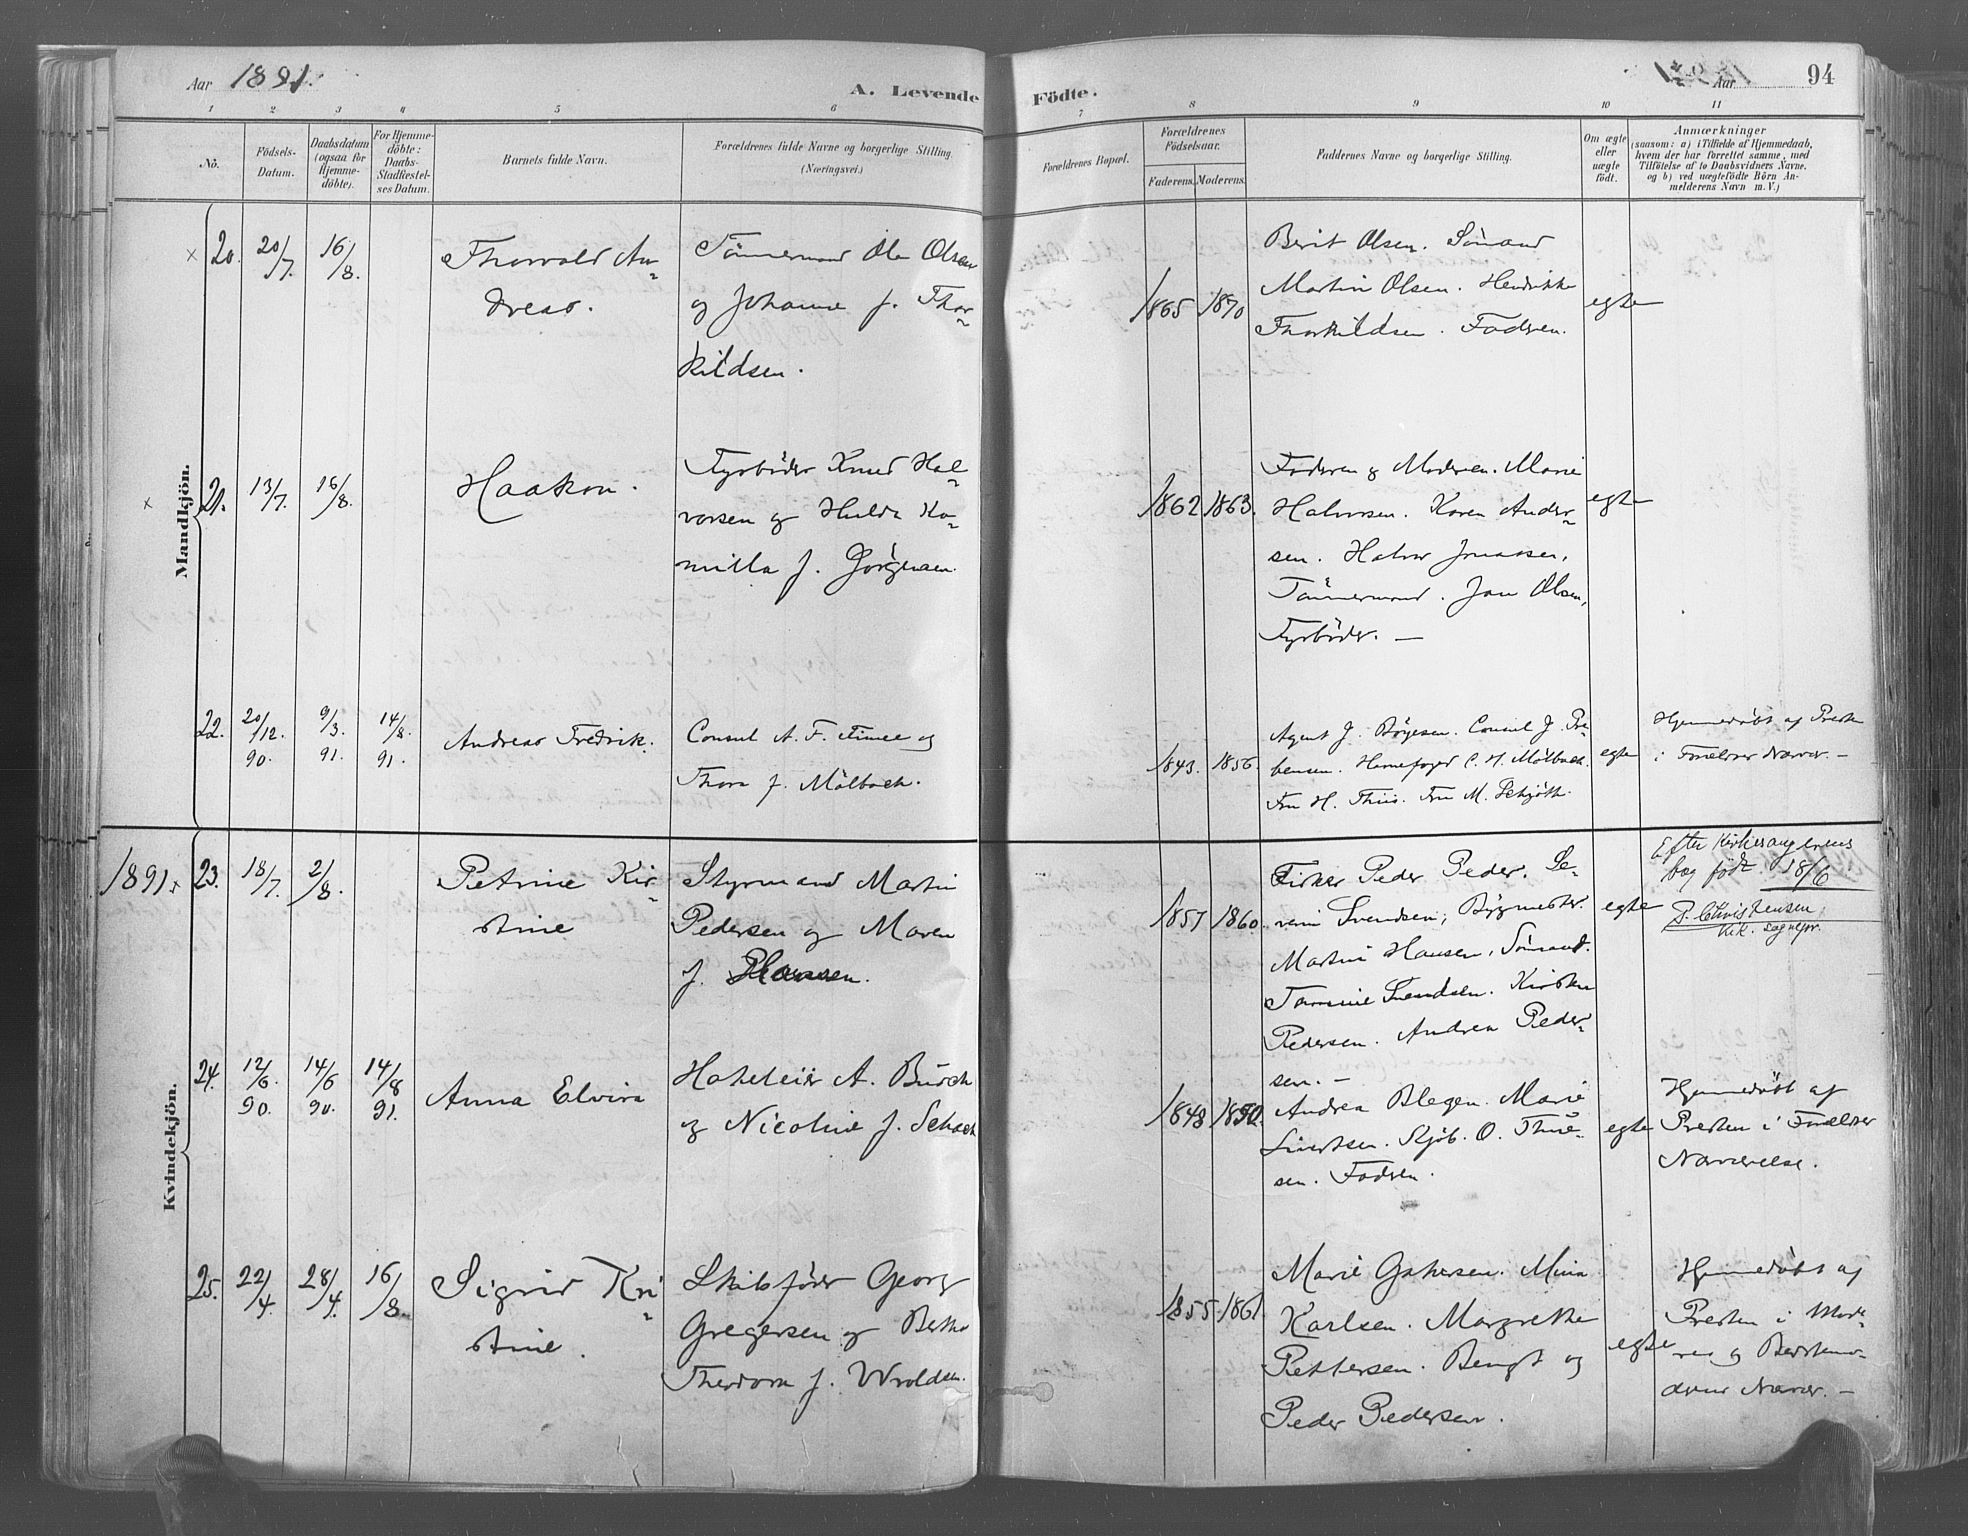 Aar 1891.
A. Levende
Födte.
Aar
94
1 2 3 4 5 6 7 8 9 10 11
No.
Födsels-
Datum.
Daabsdatum
(ogsaa for
Hjemme-
döbte).
For Hjemme-
döbte:
Daabs-
Stadfæstel-
ses Datum.
Barnets fulde Navn.
Forældrenes fulde Navne og borgerlige Stilling
(Næringsvei.)
Forældrenes Bopæl.
Forældrenes
Födselsaar.
Faderens. Moderens.
Faddernes Navne og borgerlige Stilling.
Om ægte
eller
uægte
födt.
Anmærkninger
(saasom: a) i Tilfælde af Hjemmedaab,
hvem der har forrettet samme, med
Tilföielse af to Daabsvidners Navne.
og b) ved uægtefödte Börn An-
melderens Navn m. V.)
Mandkjön.
× 20. 20/7. 16/8.
Thorvald An-
dreas.
Tömmermand Ole Olsen
og Johanne f. Thor-
kildsen.
1865 1870
Berit Olsen. Sömand
Martin Olsen. Hendrikke
Thorkildsen. Faderen.
egte
× 21. 13/7. 16/8.
Haakon.
Fyrböder Knud Hal-
vorsen og Hulda Ka-
milla f. Görgensen.
1862 1863.
Faderen og Moderen. Marie
Halvorsen. Karen Ander-
sen. Halvor Jonassen,
Tömmermand. Jan Olsen,
Fyrböder. —
egte
22. 20/12. 90. 9/3. 91. 14/8. 91.
Andreas Fredrik.
Consul A. F. og
Thora f. Mölbach.
1843. 1856.
Agent J. Börjesen. Consul J. Pre-
bensen. Havnefoged C. H. Mölbach.
Fru H. Thiis. Fru M. Schjöth.
egte
Hjemmedöbt af Presten
i Forældres Nærvær. —
Kvindekjön.
1891 × 23. 18/7. 2/8.
Petrine Kir-
stine
Styrmand Martin
Pedersen og Maren
f. Hansen.
1857 1860.
Peder Peder. Se-
verin Svendsen, Bygmester.
Martin Hansen, Sömand.
Tomine Svendsen. Kirsten
Pedersen. Andrea Peder-
sen. —
egte
Efter Kirkesangerens
bog födt 18/6
P. Christensen,
Kik. sognepr.
24. 12/6. 90. 14/6 90. 14/8 91.
Anna Elvira
Hoteleier A. Busch
og Nicoline f. Schach
1848 1850.
Andrea Blegen. Marie
Sivertsen. Skjöb. O. Thue-
sen. Fadren.
egte
Hjemmedöbt af
Presten i Forældres
Nærværelse.
25. 22/4. 28/4. 16/8.
Sigrid Kri-
stine.
Skibsförer Georg
Gregersen og Bertha
Theodora f. Wroldsen.
1855. 1861.
Marie Mina
Karlsen. Margrethe
Pettersen. Bengt og
Peder Pedersen.
egte
Hjemmedöbt af
Presten i Mode-
res og Bedstemo-
drens Nærvær. —